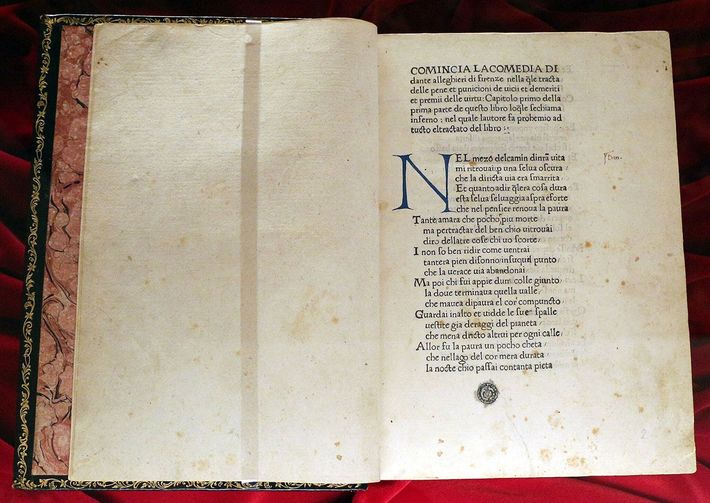 COMINCIA LACOMEDIA DI
dante alleghieri di firenze nella q̃le tracta
delle pene et punicioni de uicii et demeriti
et premii delle uirtu: Capitolo primo della
prima parte de questo libro loq̃le sechiama
inferno: nel quale lautore fa prohemio ad
tucto eltractato del libro:·
NEL mezo delcamin dinr̃a uita
mi ritrouai ꝑ una selua oscura
che la diricta uia era smarrita
Et quanto adir q̃lera cosa dura
esta selua seluaggia aspra eforte
che nel pensier renoua la paura
Tante amara che pocho piu morte
ma pertractar del ben chio uitrouai
diro dellatre cose chi uo scorte
I non so ben ridir come uentrai
tantera pien disonno insuquel punto
che la uerace uia abandonai
Ma poi chi fui appie dum colle gionto
la doue terminaua quella ualle
che mauea dipaura el cor compuncto
Guardai inalto et uidde le sue spalle
uestite gia deraggi del pianeta
che mena dricto altrui per ogni calle
Allor fu la paura un pocho cheta
che nellago del cor mera durata
la nocte chio passai contanta pieta
2